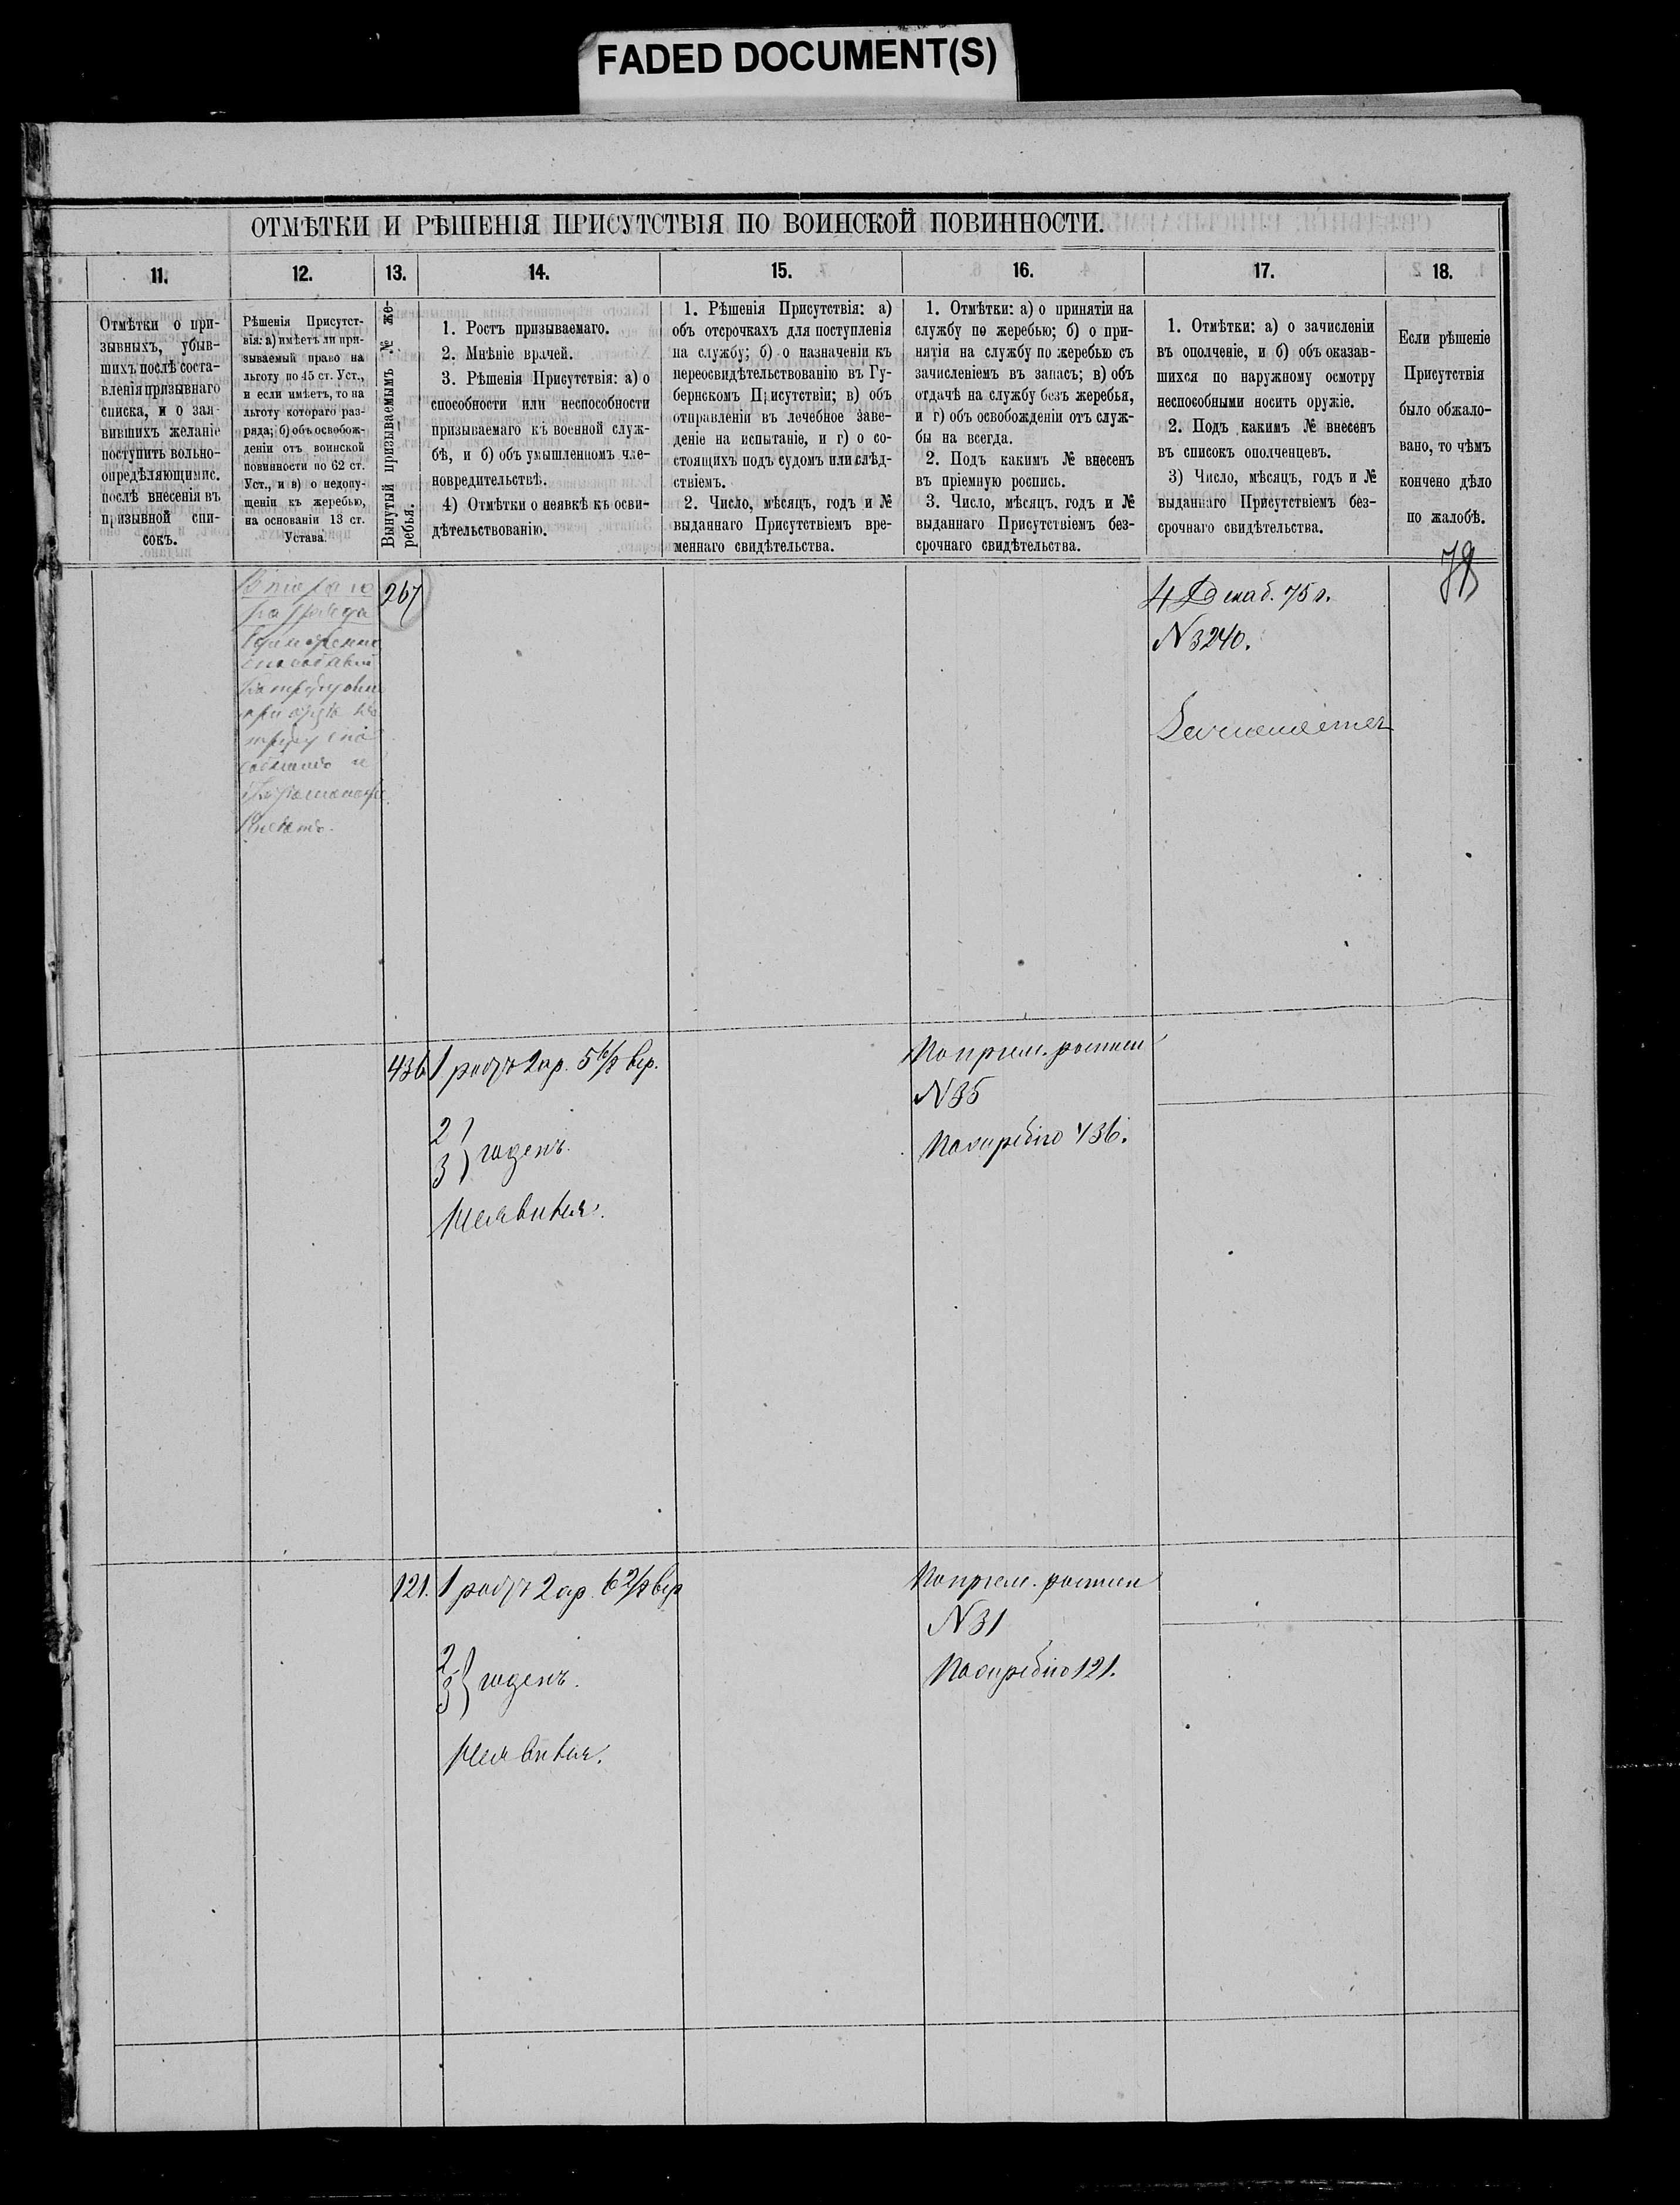 FADED DOCUMENT(S)
ОТМѢТКИ И РѢШЕНІЯ ПРИСУТСТВІЯ ПО ВОИНСКОЙ ПОВИННОСТИ.
11.
12.
13.
14.
15.
16.
17.
18.
Отмѣтки о при-
зывныхъ, убыв-
шихъ послѣ соста-
вленія призывнаго
списка, и о зая-
вившихъ желаніе
поступить вольно-
опредѣляющимис.
послѣ внесенія въ
призывной спи-
сокъ.
Рѣшенія Присутст-
вія: а) имѣетъ ли при-
зываемый право на
льготу по 45 ст. Уст.,
и если имѣетъ, то на
льготу котораго раз-
ряда; б) объ освобож-
деніи отъ воинской
повинности по 62 ст.
Уст., и в) о недопу-
щеніи къ жеребью,
на основаніи 13 ст.
Устава.
Вынутый призываемымъ № же-
ребья.
1. Ростъ призываемаго.
2. Мнѣніе врачей.
3. Рѣшенія Присутствія: а) о
способности или неспособности
призываемаго къ военной служ-
бѣ, и б) объ умышленномъ чле-
новредительствѣ.
4) Отмѣтки о неявкѣ къ осви-
дѣтельствованію.
1. Рѣшенія Присутствія: а)
объ отсрочкахъ для поступленія
на службу; б) о назначеніи къ
переосвидѣтельствованію въ Гу-
бернскомъ Присутствіи; в) объ
отправленіи въ лечебное заве-
деніе на испытаніе, и г) о со-
стоящихъ подъ судомъ или слѣд-
ствіемъ.
2. Число, мѣсяцъ, годъ и №
выданнаго Присутствіемъ вре-
меннаго свидѣтельства.
1. Отмѣтки: а) о принятіи на
службу по жеребью; б) о при-
нятіи на службу по жеребью съ
зачисленіемъ въ запасъ; в) объ
отдачѣ на службу безъ жеребья,
и г) объ освобожденіи отъ служ-
бы на всегда.
2. Подъ какимъ № внесенъ
въ пріемную роспись.
3. Число, мѣсяцъ, годъ и №
выданнаго Присутствіемъ без-
срочнаго свидѣтельства.
1. Отмѣтки: а) о зачисленіи
въ ополченіе, и б) объ оказав-
шихся по наружному осмотру
неспособными носить оружіе.
2. Подъ какимъ № внесенъ
въ списокъ ополченцевъ.
3) Число, мѣсяцъ, годъ и №
выданнаго Присутствіемъ без-
срочнаго свидѣтельства.
Если рѣшеніе
Присутствія
было обжало-
вано, то чѣмъ
кончено дѣло
по жалобѣ.
78
Втораго
разряда
267
4 Декаб. 75 г.
N 3240.
436
1 ростъ 2 ар. 5 6/8 вер.
2
3 } годенъ.
По прием. росписи
N 35
По жребію 436.
121.
1 ростъ 2 ар. 6 2/8 вер
2
3 } годенъ.
По прием. росписи
N 31
По жребію 121.